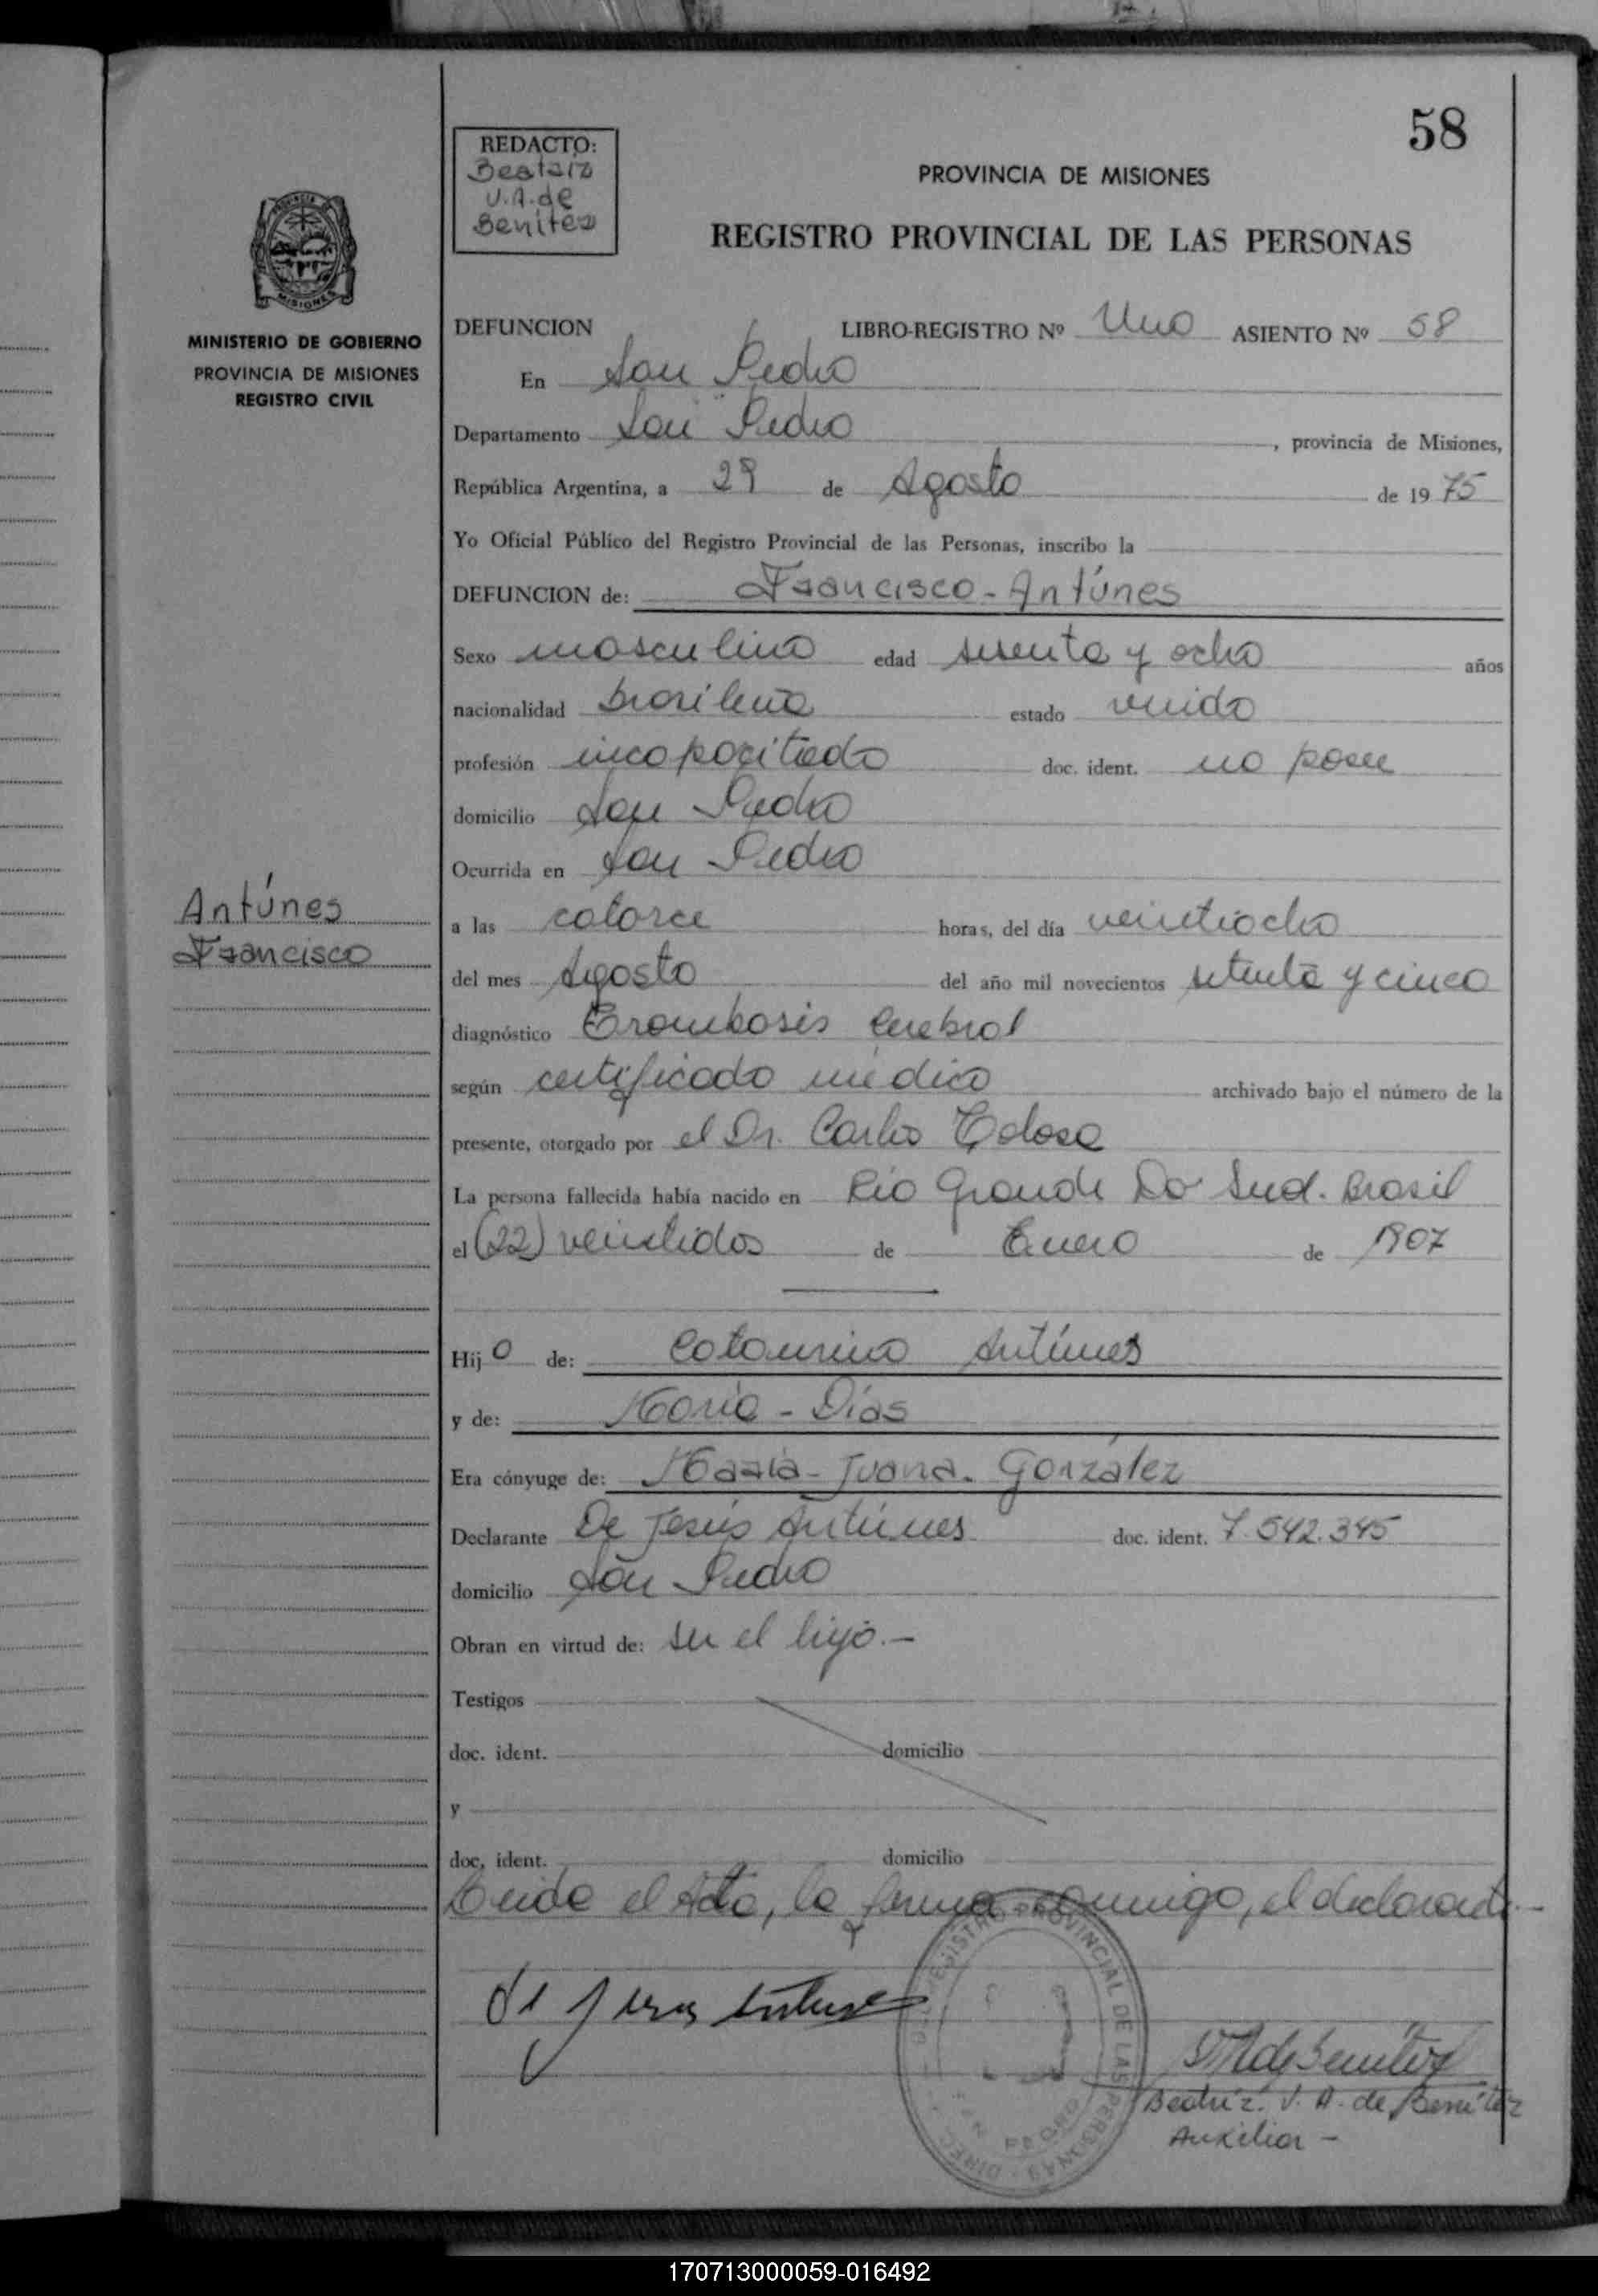 58
REDACTO:
Beatriz
V.A. de
Benítez
PROVINCIA DE MISIONES
REGISTRO PROVINCIAL DE LAS PERSONAS
MISIONES
MINISTERIO DE GOBIERNO
PROVINCIA DE MISIONES
REGISTRO CIVIL
DEFUNCION LIBRO-REGISTRO Nº Uno ASIENTO Nº 58
En San Pedro
Departamento San Pedro, provincia de Misiones,
República Argentina, a 29 de Agosto de 1975
Yo Oficial Público del Registro Provincial de las Personas, inscribo la
DEFUNCION de: Francisco - Antúnes
Sexo masculino edad sesenta y ocho años
nacionalidad brasileña estado unido
profesión incapacitado doc. ident. no posee
domicilio San Pedro
Ocurrida en San Pedro
Antúnes
Francisco
a las catorce horas, del día veintiocho
del mes Agosto del año mil novecientos setenta y cinco
diagnóstico Trombosis Cerebral
según certificado médico archivado bajo el número de la
presente, otorgado por el Dr. Carlos Tolosa
La persona fallecida había nacido en Río Grande Do Sud. Brasil
el (22) veintidos de Enero de 1907
Hijo de: Antúnes
y de: María - Días
Era cónyuge de: María - Juana. González
Declarante De Jesús Antúnes doc. ident. 7.542.345
domicilio San Pedro
Obran en virtud de: ser el hijo.-
Testigos
doc. ident. domicilio
y
doc. ident. domicilio
Leída el Acta, la firma conmigo, el declarante.-
de Jesus Antunes
REGISTRO PROVINCIAL DE LAS PERSONAS
SAN PEDRO
Beatriz. V. A. de Benítez
Auxiliar -
170713000059-016492